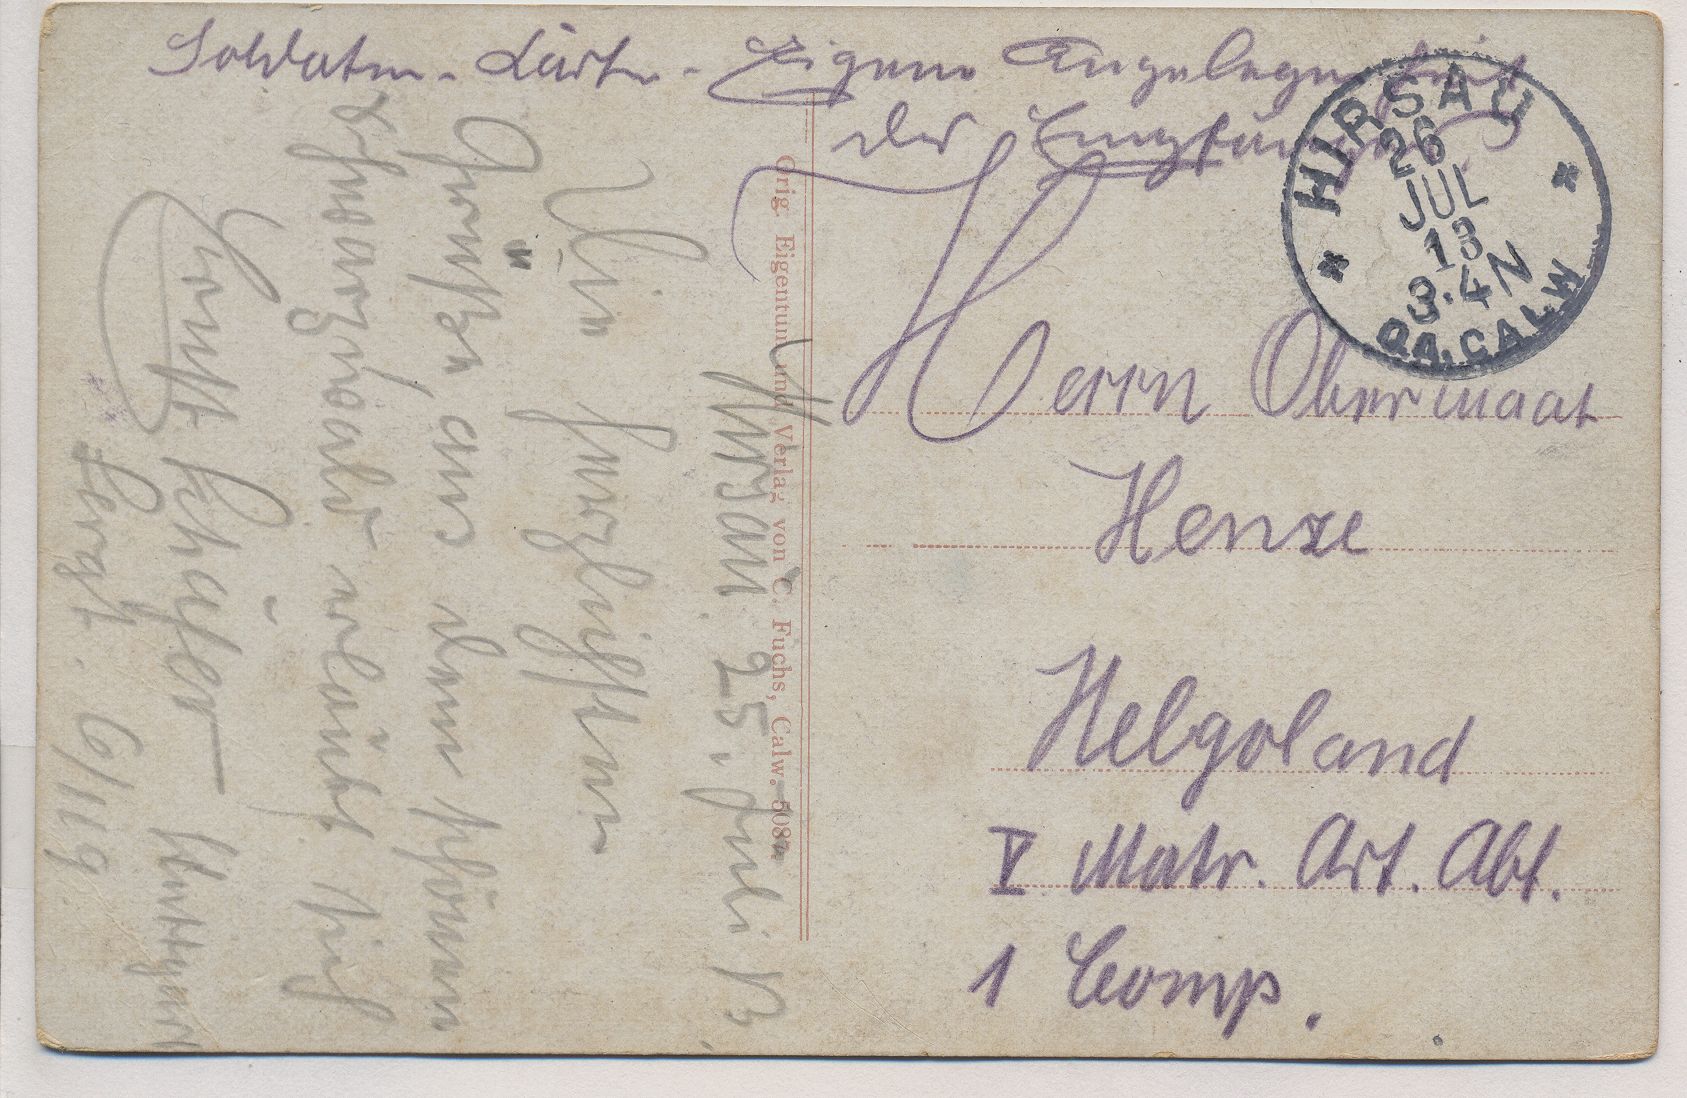 Soldaten-Karte - Eigene Angelegenheit
des Empfängers
HIRSAU
26
JUL
13
3.4N
OA. CALW
Herrn Obermaat
Henze
Helgoland
V Matr. Art. Abt.
1 Comp.
Orig. Eigentum und Verlag von C. Fuchs, Calw. 5087.
Hirsau. 25. Juli 13.
Die herzlichsten
Grüße aus dem schönen
Schwarzwald erlaubt sich
Schäfer
Sergt. 6/119. Stuttgart